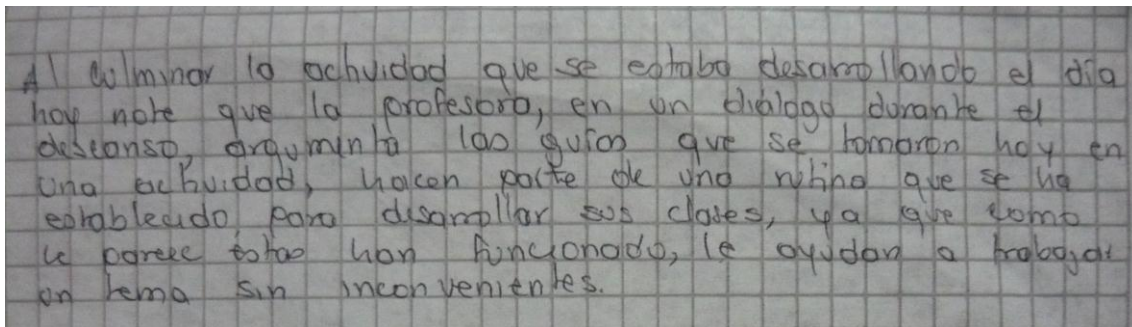 Al culminar la actividad que se estaba desarrollando el día
hoy note que la profesora, en un diálogo durante el
descanso, argumenta las guías que se tomaron hoy en
una actividad, hacen parte de una rutina que se ha
establecido para desarrollar sus clases, ya que como
le parece estas han funcionado, le ayudan a trabajar
un tema sin inconvenientes.